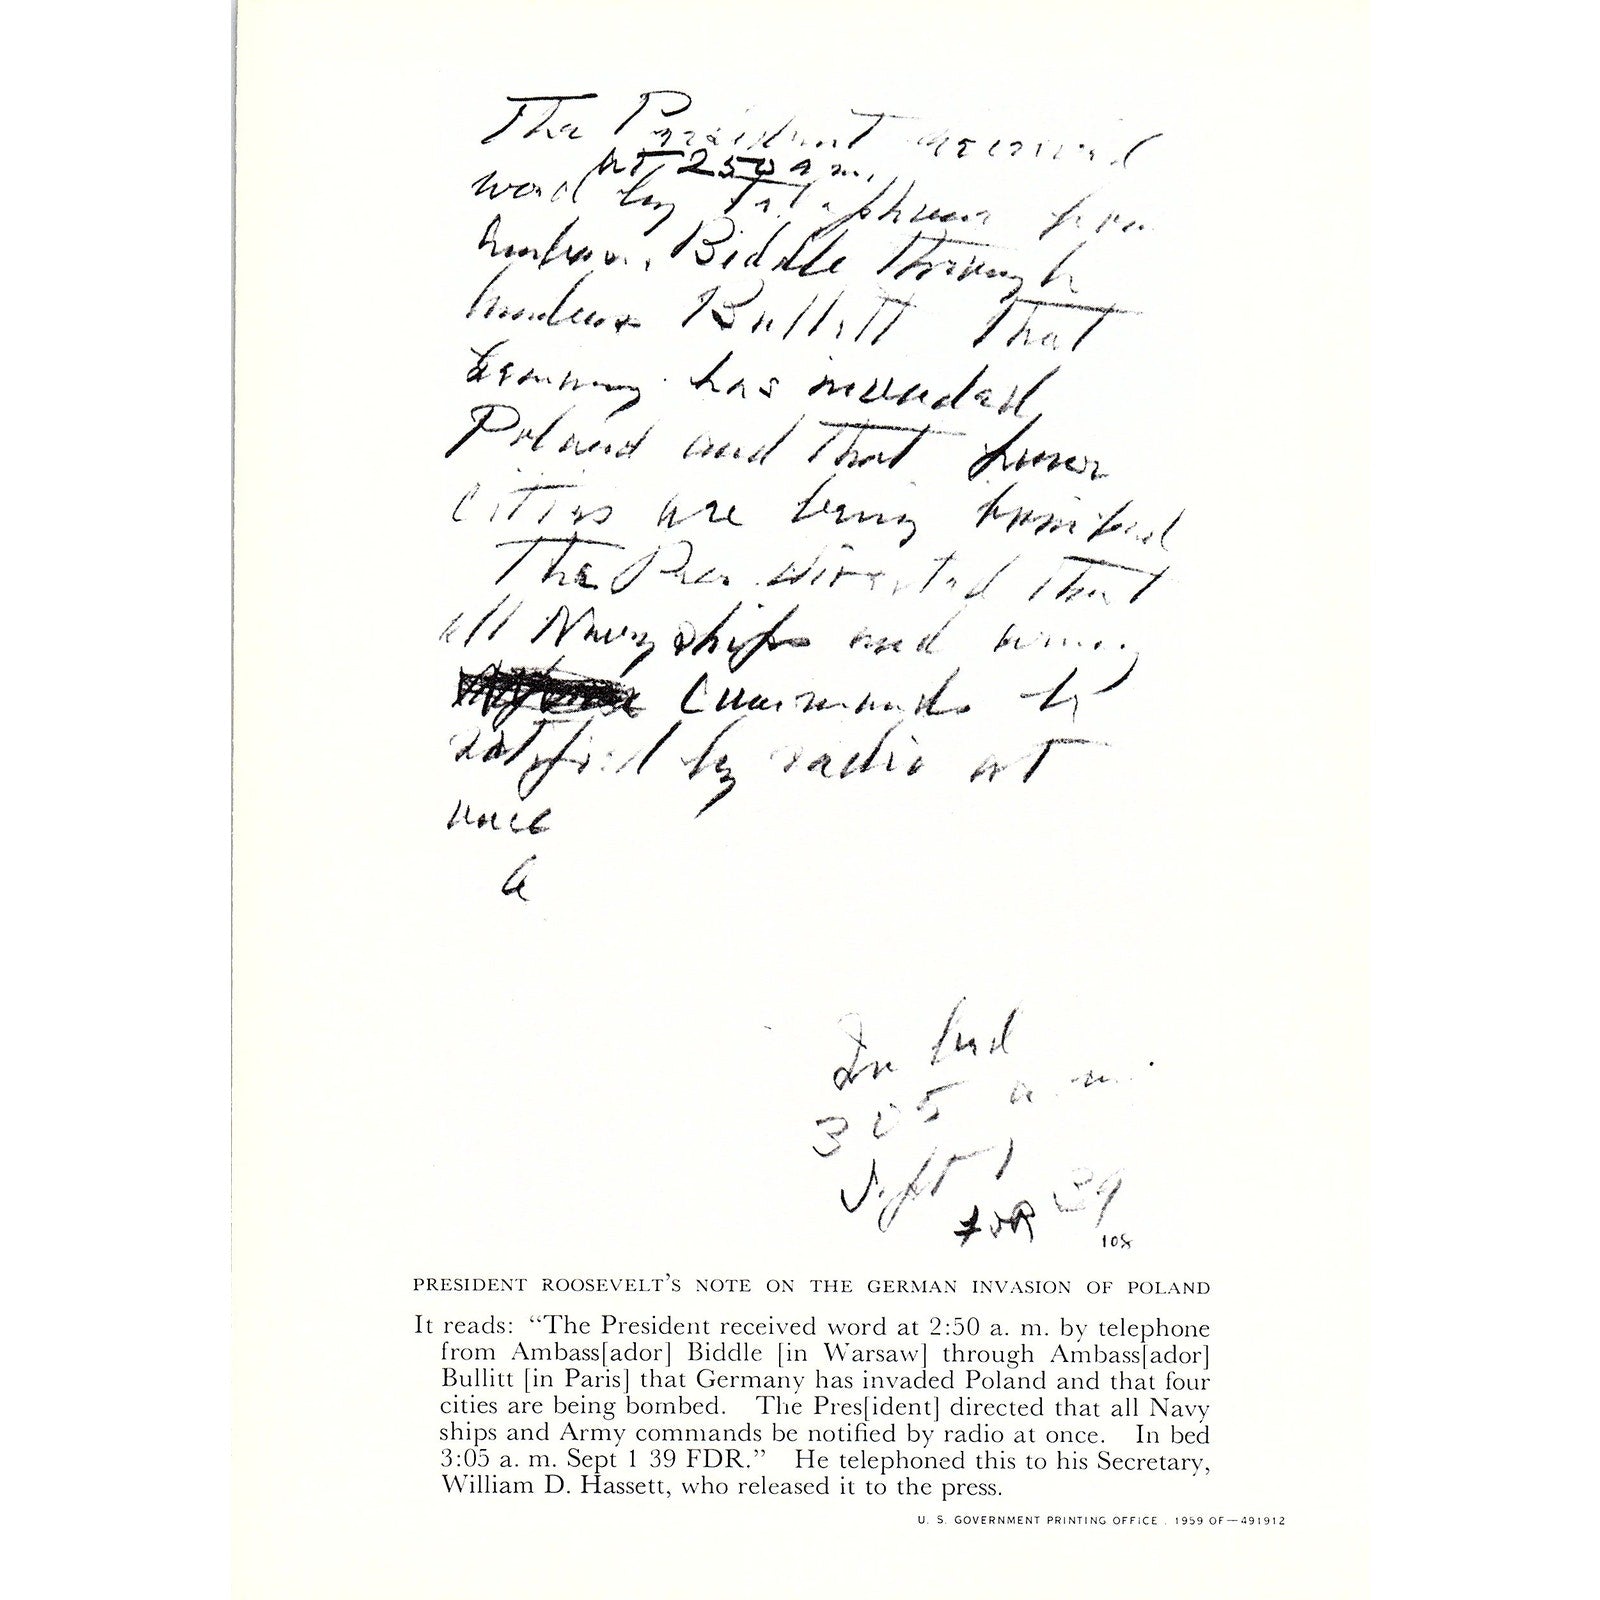 The President received
at 250 a m.
word by Telephone from
Ambass. Biddle through
Ambass Bullitt that
Germany has invaded
Poland and that four
cities are being bombed
The Pres. directed that
all Navy ships and army
Commands be
notified by radio at
once
In bed
305 a.m.
Sept 1
FDR 39
108
PRESIDENT ROOSEVELT'S NOTE ON THE GERMAN INVASION OF POLAND
It reads: “The President received word at 2:50 a. m. by telephone
from Ambass[ador] Biddle [in Warsaw] through Ambass[ador]
Bullitt [in Paris] that Germany has invaded Poland and that four
cities are being bombed. The Pres[ident] directed that all Navy
ships and Army commands be notified by radio at once. In bed
3:05 a. m. Sept 1 39 FDR.” He telephoned this to his Secretary,
William D. Hassett, who released it to the press.
U. S. GOVERNMENT PRINTING OFFICE . 1959 OF—491912